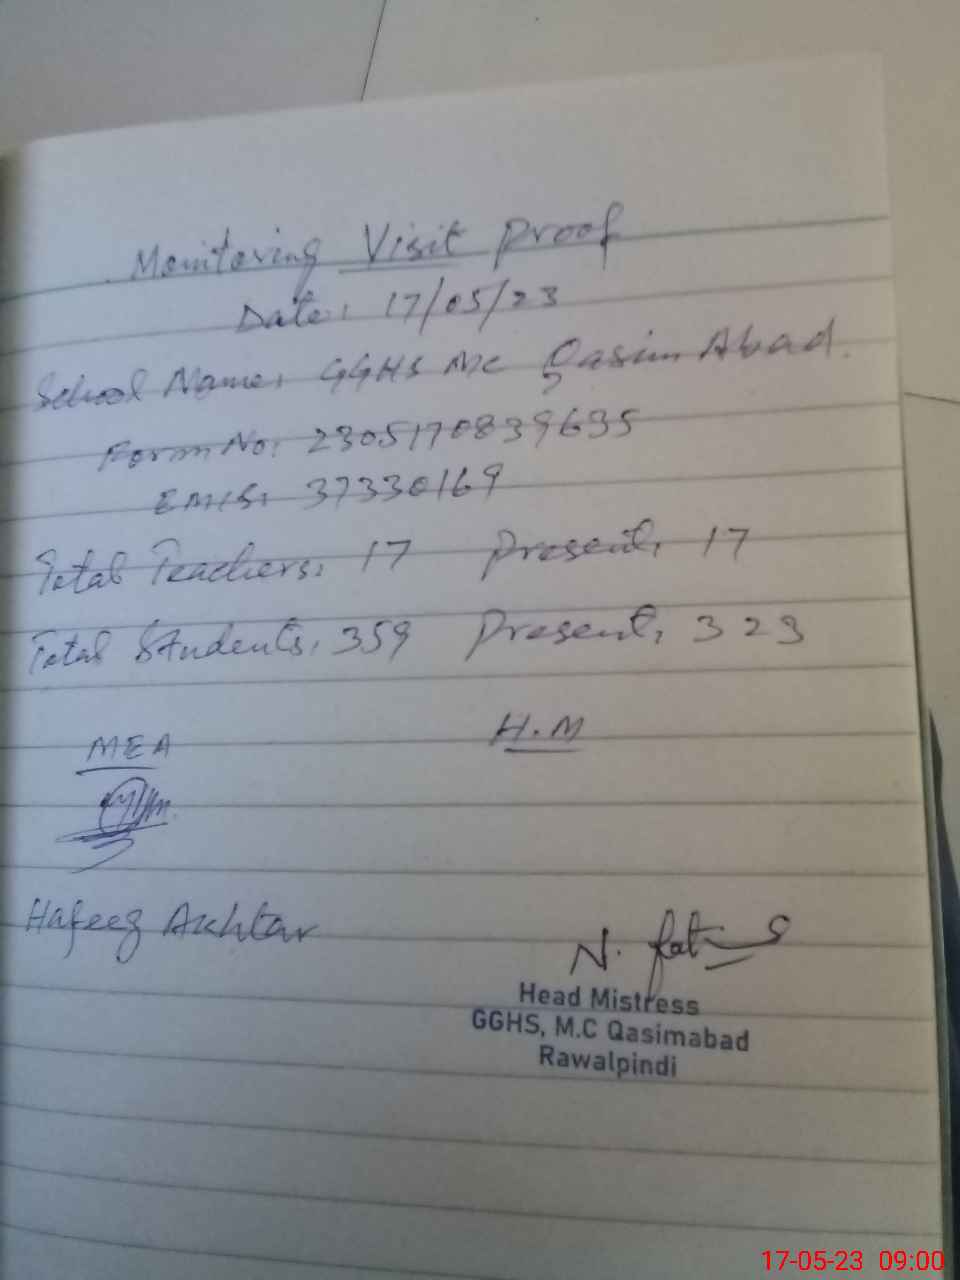 Monitoring Visit Proof
Date: 17/05/23
School Name: GGHS MC Qasim Abad.
Form No: 2305170839635
EMIS: 37330169
Total Teachers: 17 Present: 17
Total Students: 359 Present: 323
MEA H.M
Hafeez Akhtar
N. Fatima
Head Mistress
GGHS, M.C Qasimabad
Rawalpindi
17-05-23 09:00